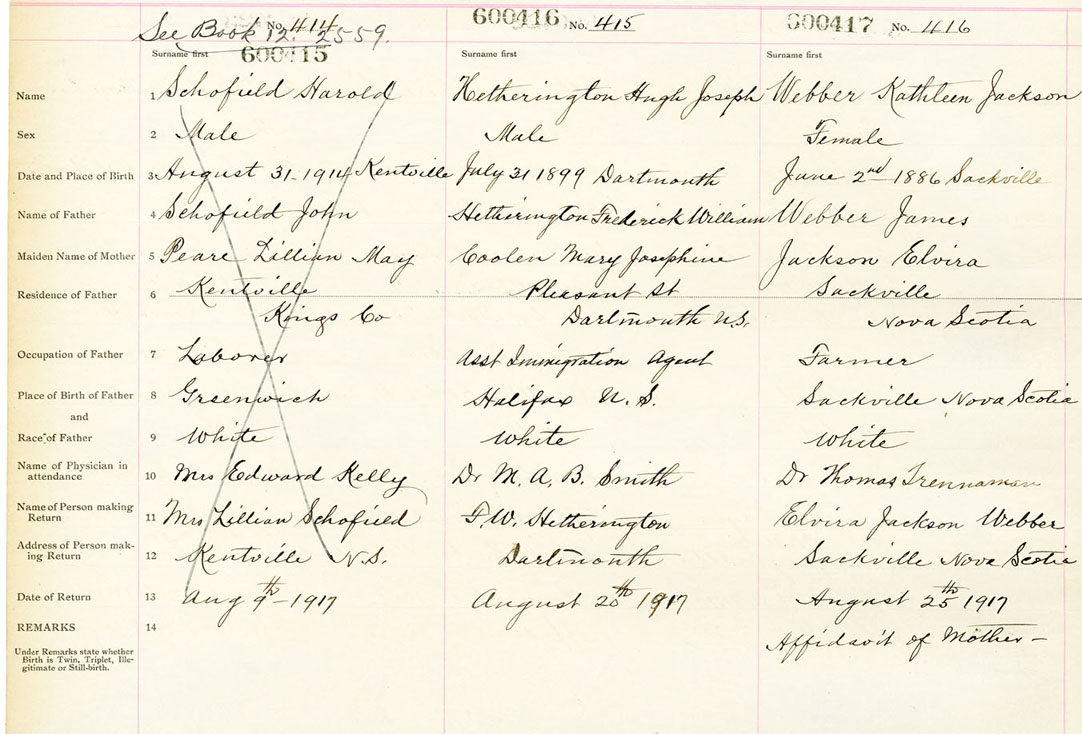 See Book 12. 2559.
No. 414
600415
600416 No. 415
600417 No. 416
Surname first
Surname first
Surname first
Name 1 Schofield Harold Hetherington Hugh Joseph Webber Kathleen Jackson
Sex 2 Male Male Female
Date and Place of Birth 3 August 31 1914 Kentville July 31 1899 Dartmouth June 2nd 1886 Sackville
Name of Father 4 Schofield John Hetherington Frederick William Webber James
Maiden Name of Mother 5 Lillian May Coolen Mary Josephine Jackson Elvira
Residence of Father 6 Kentville Pleasant St Sackville
Kings Co Dartmouth N.S. Nova Scotia
Occupation of Father 7 Laborer Asst Immigration Agent Farmer
Place of Birth of Father 8 Greenwich Halifax N.S. Sackville Nova Scotia
and
Race of Father 9 White White White
Name of Physician in
attendance 10 Mrs Edward Kelly Dr M. A. B. Smith Dr Thomas Trennaman
Name of Person making
Return 11 Mrs Lillian Schofield F. W. Hetherington Elvira Jackson Webber
Address of Person mak-
ing Return 12 Kentville N.S. Dartmouth Sackville Nova Scotia
Date of Return 13 Aug 9th - 1917 August 20th 1917 August 25th 1917
REMARKS 14 Affidavit of Mother -
Under Remarks state whether
Birth is Twin, Triplet, Ille-
gitimate or Still-birth.